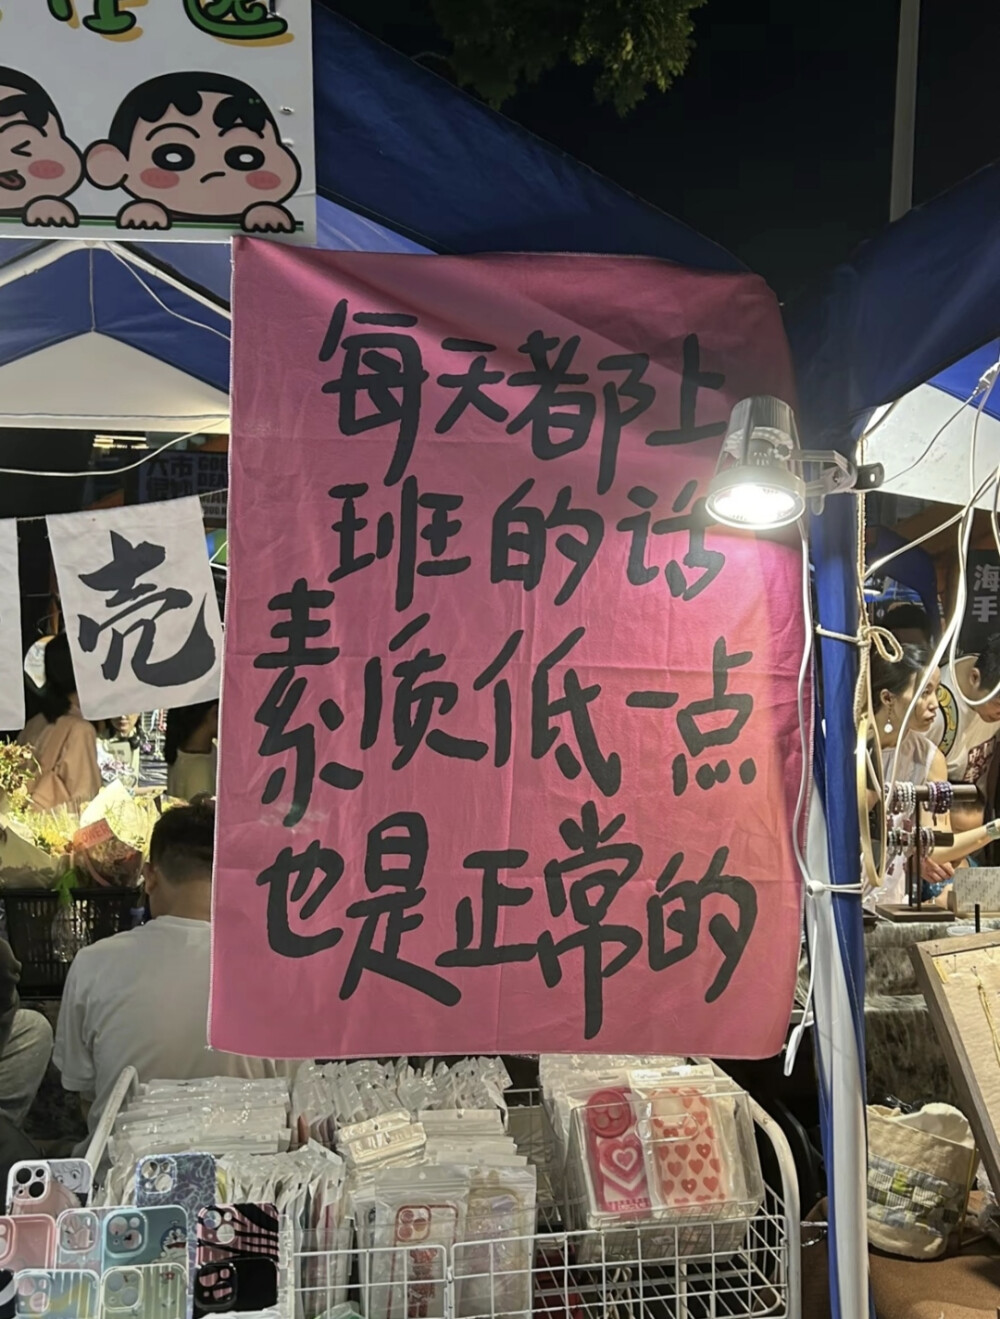 每天都上
班的话
素质低一点
也是正常的
壳
海
手